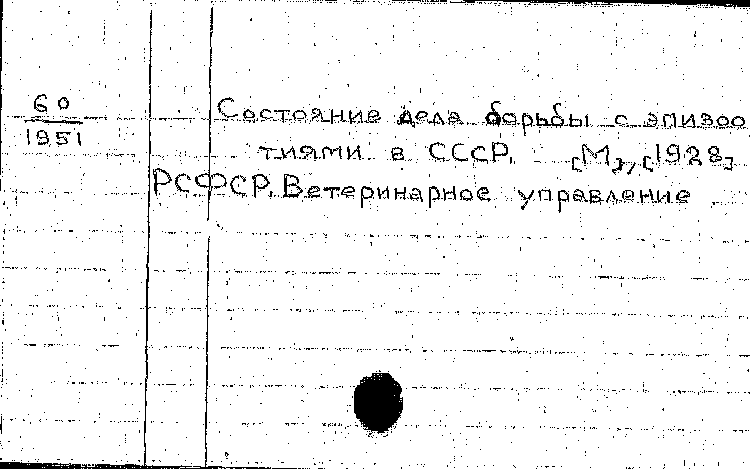 60
1951
Состояние дела борьбы с эпизоо
тиями в СССР. [М.], [1928]
РСФСР. Ветеринарное управление